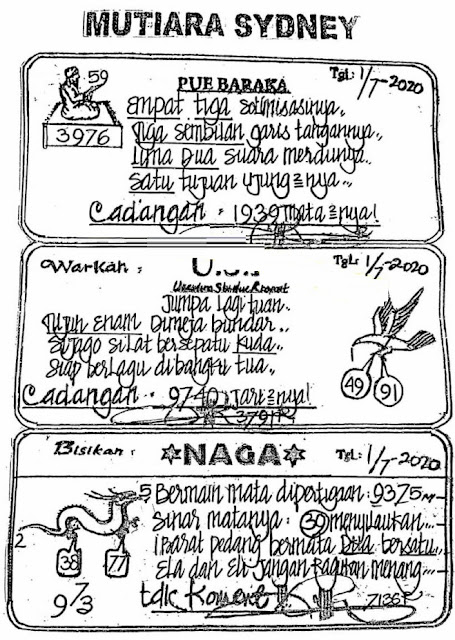 MUTIARA SYDNEY
59
3976
PUE BARAKA
TgL: 1/7-2020
Empat tiga
Tiga sembilan garis tangannya..
Lima Dua suara merdunya..
satu tujuan ujung=nya..
Cadangan : 1939 mata=nya!
Warkah :
TgL: 1/7-2020
Jumpa lagi tuan..
Tujuh Enam Dimeja bundar..
Si jago silat bersepatu kuda..
Siap berlagu di bangku tua..
Cadangan : 9740 Jari=nya!
3791
49
91
Bisikan :
NAGA
TgL: 1/7-2020
5
2
38
77
9 7/3
Bermain mata dipertigaan : 9375
Sinar matanya : 39 menyilaukan...
Ibarat pedang bermata Dua bersatu..
Ela dan Eli jangan ragukan menang...
tdk Koment
7136